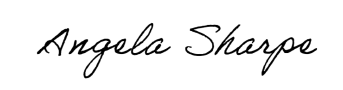 Angela Sharpe